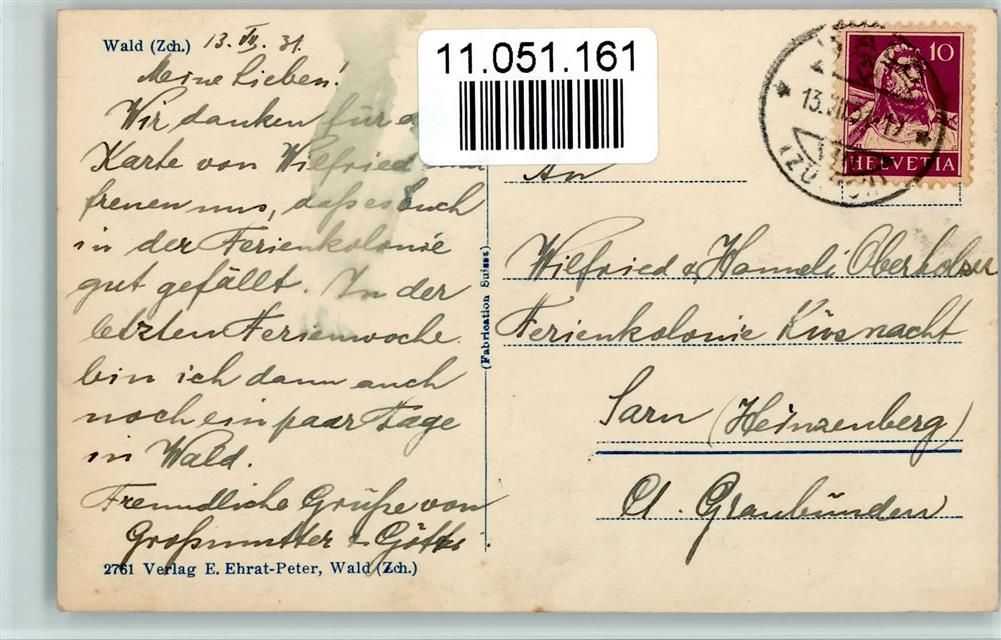 Wald (Zch.) 13. VII. 31.
Meine Lieben!
Wir danken für d
Karte von Wilfried und
freuen uns, daß es Euch
in der Ferienkolonie
gut gefällt. In der
letzten Ferienwoche
bin ich dann auch
noch ein paar Tage
in Wald.
Freundliche Grüße von
Großmutter & Götti.
2761 Verlag E. Ehrat-Peter, Wald (Zch.)
(Fabrication Suisse)
11.051.161
10
HELVETIA
13.VII.31
(ZÜRICH)
An
Wilfried & Hanneli Oberholzer
Ferienkolonie Küsnacht
Sarn (Heinzenberg)
Ct. Graubünden